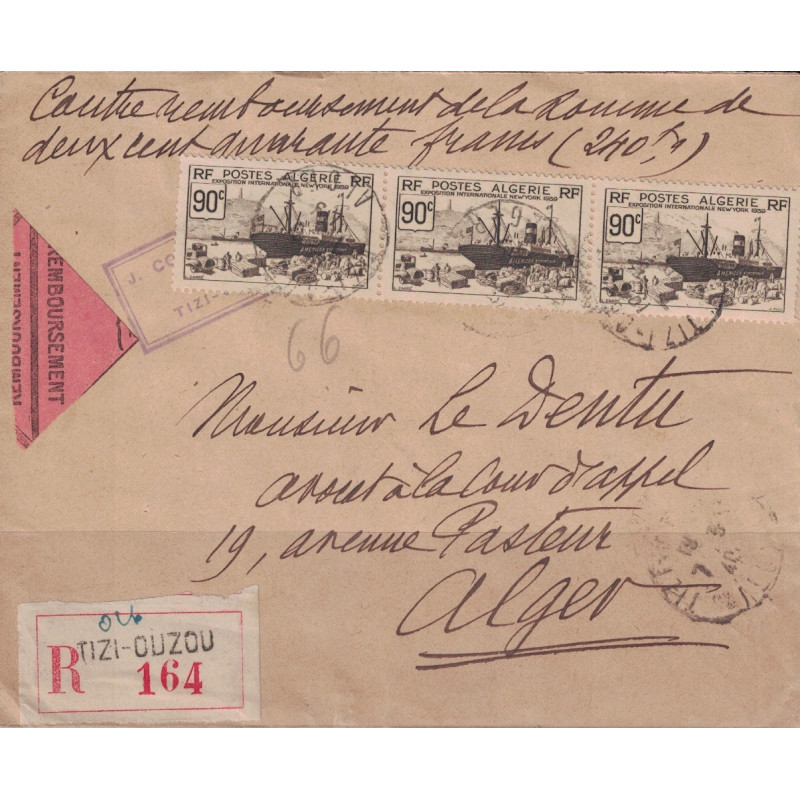 Contre remboursement de la somme de
deux cent quarante francs (240 frs)
RF POSTES ALGERIE RF
EXPOSITION INTERNATIONALE NEW YORK 1939
90c
RF POSTES ALGERIE RF
EXPOSITION INTERNATIONALE NEW YORK 1939
90c
RF POSTES ALGERIE RF
EXPOSITION INTERNATIONALE NEW YORK 1939
90c
REMBOURSEMENT
REMBOURSEMEN
J. CO
TIZI-
TIZI-O
66
Monsieur Le Dentu
avocat à la Cour d'appel
19, avenue Pasteur
Alger
TIZI-OUZOU
R 164